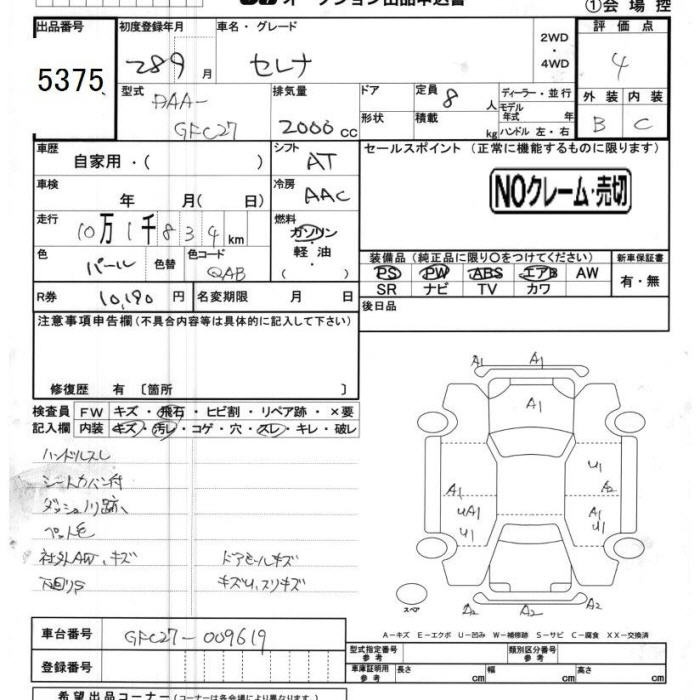 オークション出品申込書
①会場控
出品番号 初度登録年月 車名・グレード 2WD・4WD 評価点
5375 289月 セレナ 4
型式 DAA-GFC27 排気量 2000cc ドア 形状 定員 8人 積載 kg ディーラー・並行 モデル年式 年 ハンドル 左・右 外装 内装
B C
車歴 自家用・( ) シフト AT セールスポイント (正常に機能するものに限ります)
車検 年 月( 日) 冷房 AAC NOクレーム・売切
走行 10万1千834km 燃料 ガソリン・軽油・( )
色 パール 色替 色コード QAB 装備品 (純正品に限り○をつけてください) 新車保証書
PS PW ABS エアB AW 有・無
SR ナビ TV カワ
R券 10,190円 名変期限 月 日 後日品
注意事項申告欄(不具合内容等は具体的に記入して下さい)
修復歴 有 〔箇所 〕
検査員 FW キズ・飛石・ヒビ割・リペア跡・×要
記入欄 内装 キズ・汚レ・コゲ・穴・スレ・キレ・破レ
ハンドルスレ
ダッシュノリ跡
ペット毛
社外AW、キズ ドアモールキズ
下回りS キズU、スリキズ
A1 A1
A1
U1
A1 A2
UA1 A1
U1 U1
スペア A2 A2 A2
A-キズ E-エクボ U-凹み W-補修跡 S-サビ C-腐食 XX-交換済
車台番号 GFC27-009619
型式指定番号 参考 類別区分番号 参考
登録番号 車庫証明用 参考 長さ cm 幅 cm 高さ cm
希望出品コーナー (コーナーは各会場により異なります)